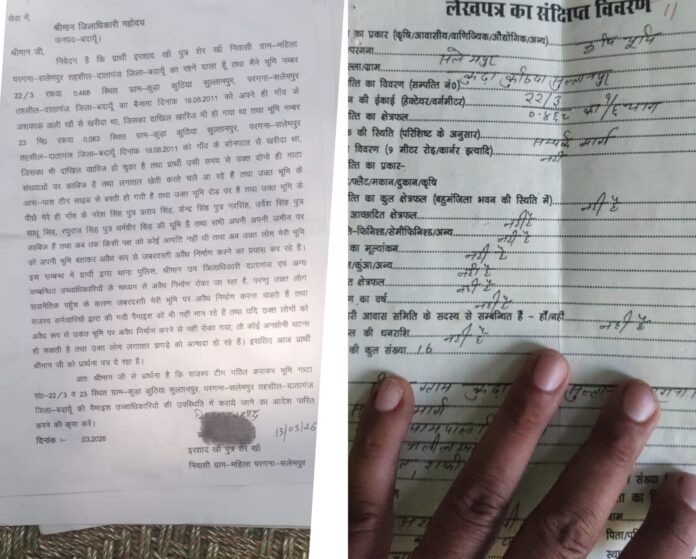 सेवा में,
श्रीमान जिलाधिकारी महोदय
जनपद-बदायूँ।
श्रीमान जी,
निवेदन है कि प्रार्थी इरशाद खाँ पुत्र शेर खाँ निवासी ग्राम-महिला
परगना-सलेमपुर तहसील-दातागंज जिला-बदायूँ का रहने वाला हूँ तथा मैंने भूमि नम्बर
22/3 रकवा 0.468 स्थित ग्राम-कुड़ा कुठिया सुल्तानपुर, परगना-सलेमपुर
तहसील-दातागंज जिला-बदायूँ का बैनामा दिनांक 16.05.2011 को अपने ही गाँव के
अशफाक अली खाँ से खरीदा था, जिसका दाखिल खारिज भी हो गया था तथा भूमि नम्बर
23 मि0 रकवा 0.063 स्थित ग्राम-कुड़ा कुठिया सुल्तानपुर, परगना-सलेमपुर
तहसील-दातागंज जिला-बदायूँ दिनांक 19.06.2011 को गाँव के सोनपाल से खरीदा था,
जिसका भी दाखिल खारिज हो चुका है तथा प्रार्थी उसी समय से उक्त दोनो ही गाटा
संख्याओं पर काबिज है तथा लगातार खेती करते चले आ रहे हैं तथा उक्त भूमि के
आस-पास तीन साइड से बस्ती हो गयी है तथा उक्त भूमि रोड पर है तथा उक्त भूमि के
पीछे मेरे ही गाँव के नरेश सिंह पुत्र प्रताप सिंह, केन्द सिंह पुत्र नरसिंह, उर्वेश सिंह पुत्र
साधू सिंह, रघुराज सिंह पुत्र धर्मवीर सिंह की भूमि है तथा सभी अपनी अपनी जमीन पर
काबिज है तथा अब तक किसी पक्ष को कोई आपत्ति नहीं थी तथा अब उक्त लोग मेरी भूमि
को अपनी भूमि बताकर अवैध रूप से जबरदस्ती अवैध निर्माण करने का प्रयास कर रहे हैं।
इस सम्बन्ध में प्रार्थी द्वारा थाना पुलिस, श्रीमान उप जिलाधिकारी दातागंज एवं अन्य
सम्बन्धित उच्चाधिकारियों के माध्यम से अवैध निर्माण रोका जा रहा है, परन्तु उक्त लोग
राजनैतिक पहुँच के कारण जबरदस्ती मेरी भूमि पर अवैध निर्माण करना चाहते हैं तथा
राजस्व कर्मचारियों द्वारा की गयी पैमाइश को भी नहीं मान रहे है तथा यदि उक्त लोगों को
अवैध रूप से उक्त भूमि पर अवैध निर्माण करने से नही रोका गया, तो कोई अनहोनी घटना
हो सकती है तथा उक्त लोग लगातार झगड़े को आमादा हो रहे हैं। इसलिए आज प्रार्थी
श्रीमान जी को प्रार्थना पत्र दे रहा है।
अतः श्रीमान जी से प्रार्थना है कि राजस्व टीम गठित कराकर भूमि गाटा
सं0-22/3 व 23 स्थित ग्राम-कुड़ा कुठिया सुल्तानपुर, परगना-सलेमपुर तहसील-दातागंज
जिला-बदायूँ की पैमाइश उच्चाधिकारियों की उपस्थिति में कराये जाने का आदेश पारित
करने की कृपा करें।
दिनांक :- .03.2026
13/03/26
इरशाद खाँ पुत्र शेर खाँ
निवासी ग्राम-महिला परगना-सलेमपुर
लेखपत्र का संक्षिप्त विवरण 11
का प्रकार (कृषि/आवासीय/वाणिज्यिक/औद्योगिक/अन्य) कृषि भूमि
परगना सलेमपुर
ल्ला/ग्राम कुढ़ा कुठिया सुल्तानपुर
त्ति का विवरण (सम्पत्ति नं0) 22/3
न की ईकाई (हेक्टेयर/वर्गमीटर)
त्ति का क्षेत्रफल 0.468 का 1/6 भाग
क की स्थिति (परिशिष्ट के अनुसार) सम्पर्क मार्ग
विवरण (9 मीटर रोड़/कार्नर इत्यादि) नहीं
त्ति का प्रकार-
/फ्लैट/मकान/दुकान/कृषि
त्ति का कुल क्षेत्रफल (बहुमंजिला भवन की स्थिति में) नहीं है
आच्छादित क्षेत्रफल नहीं है
-फिनिश्ड/सेमीफिनिश्ड/अन्य नहीं है
का मूल्यांकन नहीं है
/कुंआ/अन्य नहीं है
त क्षेत्रफल नहीं है
ण का वर्ष नहीं है
री आवास समिति के सदस्य से सम्बन्धित है - हाँ/नहीं नहीं है
ल की धनराशि नहीं है
की कुल संख्या 16
ग्राम कुढ़ा सुल्तान
मार्ग
संख्या
का
नाम
पिता/प